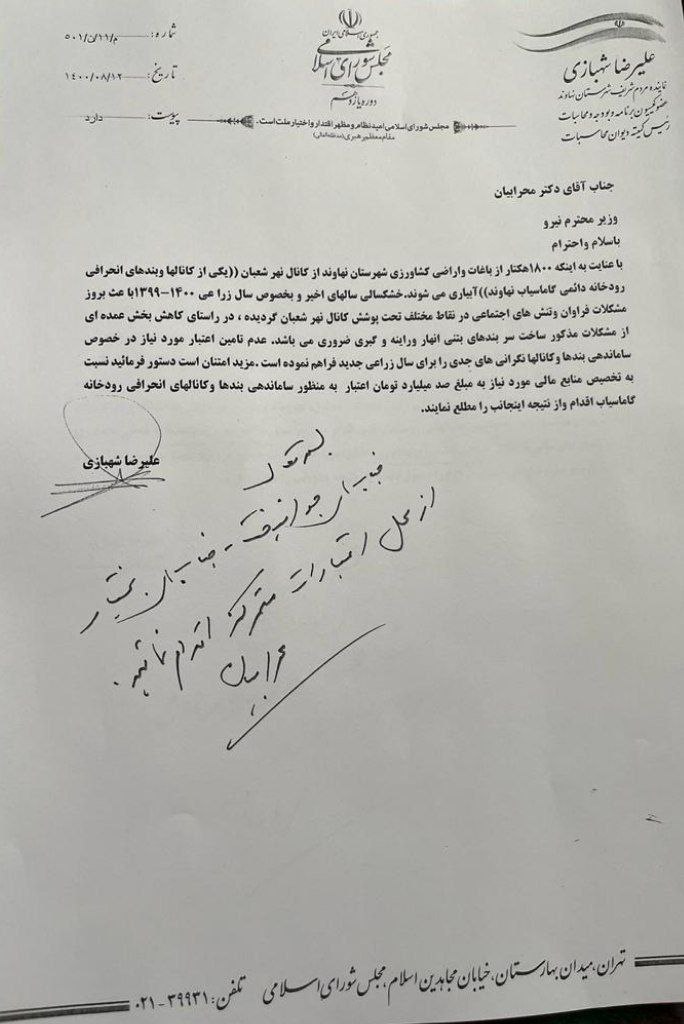 جمهوری اسلامی ایران
مجلس شورای اسلامی
دوره یازدهم
مجلس شورای اسلامی امید نظام و مظهر اقتدار و اختیار ملت است.
مقام معظم رهبری (مدظله العالی)
علیرضا شهبازی
نماینده مردم شریف شهرستان نهاوند
عضو کمیسیون برنامه و بودجه و محاسبات
رئیس کمیته دیوان محاسبات
شماره: م/۱۱/ن/۵۰۱
تاریخ: ۱۴۰۰/۰۸/۱۲
پیوست: دارد
جناب آقای دکتر محرابیان
وزیر محترم نیرو
باسلام واحترام
با عنایت به اینکه ۱۸۰۰هکتار از باغات واراضی کشاورزی شهرستان نهاوند از کانال نهر شعبان ((یکی از کانالها وبندهای انحرافی
رودخانه دائمی گاماسیاب نهاوند))آبیاری می شوند.خشکسالی سالهای اخیر و بخصوص سال زرا عی ۱۴۰۰-۱۳۹۹با عث بروز
مشکلات فراوان وتنش های اجتماعی در نقاط مختلف تحت پوشش کانال نهر شعبان گردیده ، در راستای کاهش بخش عمده ای
از مشکلات مذکور ساخت سر بندهای بتنی انهار وراینه و گیری ضروری می باشد. عدم تامین اعتبار مورد نیاز در خصوص
ساماندهی بندها وکانالها نگرانی های جدی را برای سال زراعی جدید فراهم نموده است .مزید امتنان است دستور فرمائید نسبت
به تخصیص منابع مالی مورد نیاز به مبلغ صد میلیارد تومان اعتبار به منظور ساماندهی بندها وکانالهای انحرافی رودخانه
گاماسیاب اقدام واز نتیجه اینجانب را مطلع نمایند.
علیرضا شهبازی
بسمه تعالی
از محل اعتبارات متمرکز اقدام نمائید.
محرابیان
تهران، میدان بهارستان، خیابان مجاهدین اسلام، مجلس شورای اسلامی تلفن: ۳۹۹۳۱-۰۲۱